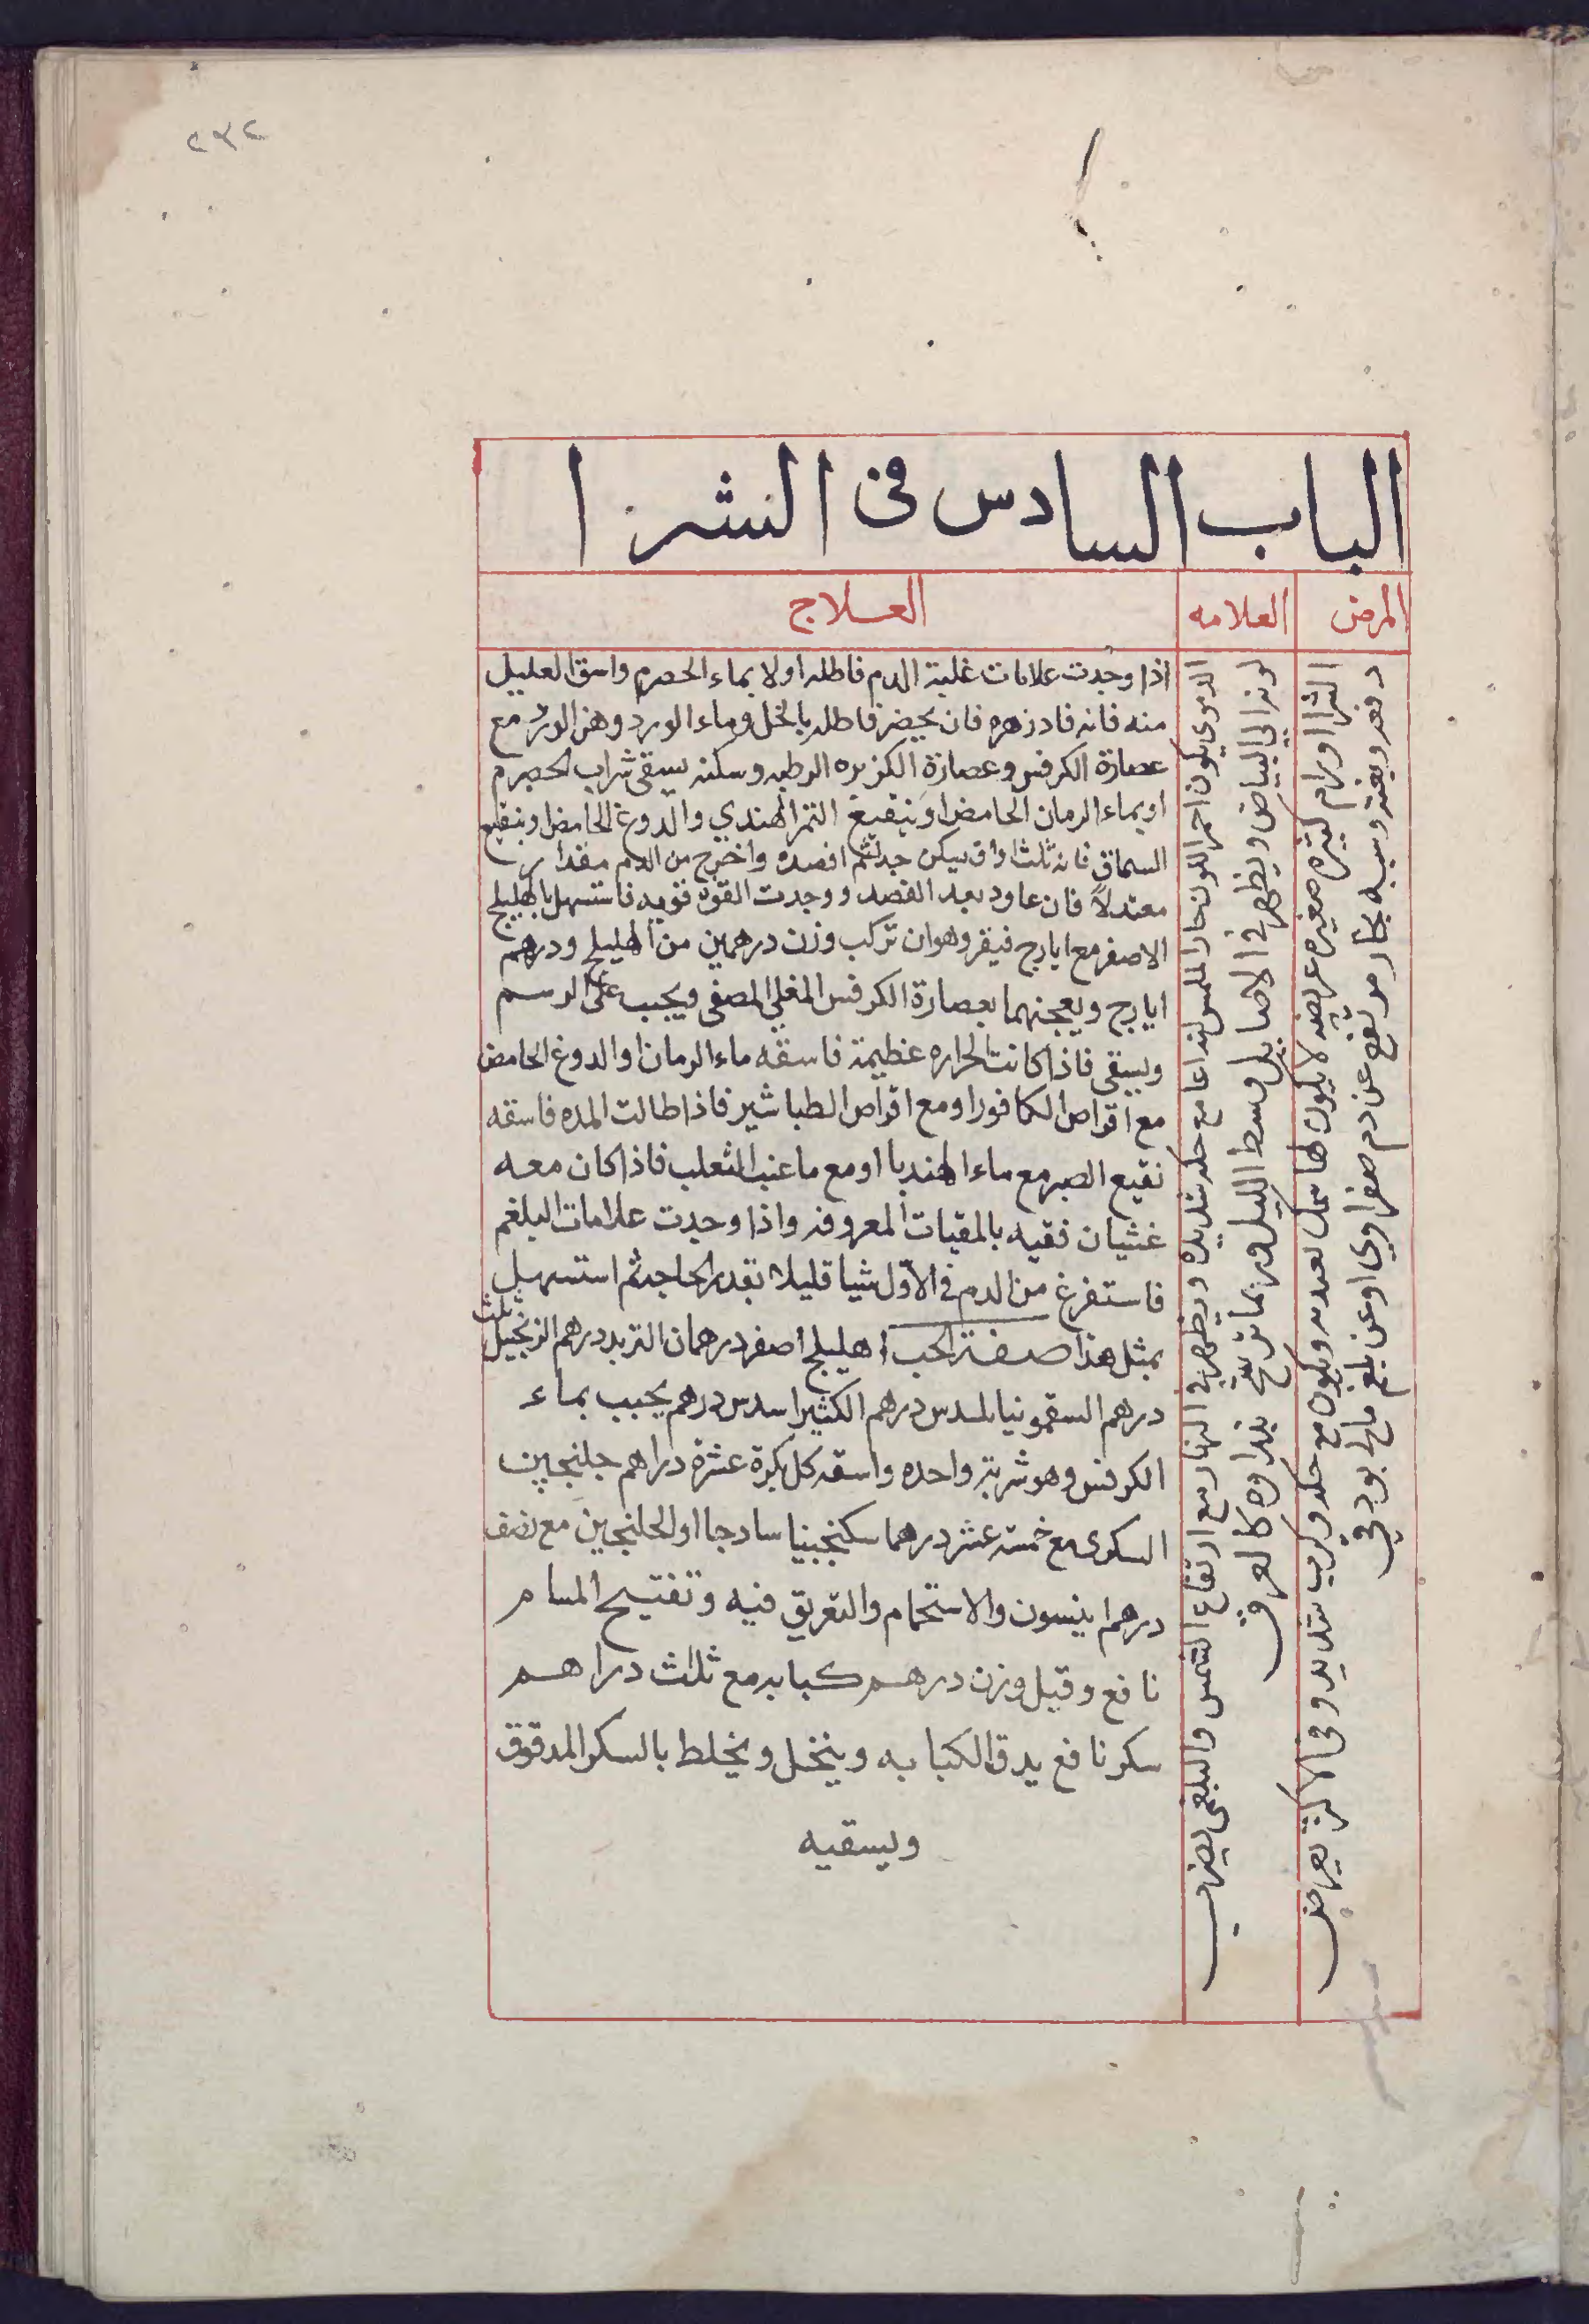 ٢٣٢
الباب السادس في الشرا
المرض
العلامه
العلاج
الشرا اورام كثيره صغيره عريضه لا يكون لها سمك ويكون مع حكه وكرب شديد وفي الاكثر يعرض
دفعه وبغته وسببه بخار مرتفع عن دم صفراوي او عن بلغم مالح بورقي
الدموي يكون احمر اللون حار الملمس لذاعا مع حكه شديده ويظهر في النهار مع ارتفاع الشمس والبلغمي يضرب
لونه الى البياض ويظهر في الاصايل وسط الليل وربما ترشح نداوه كالعرق
اذا وجدت علامات غلبة الدم فاطله اولا بماء الحصرم واسق العليل
منه فانه فادزهره فان يحضر فاطله بالخل وماء الورد وهن الورد مع
عصارة الكرفس وعصارة الكزبره الرطبه وسكنه يسقى شراب الحصرم
او بماء الرمان الحامض او بنقيع التمر الهندي والدوغ الحامض او بنقيع
السماق فانه ثلث اواق يسكن حدته ثم افصده واخرج من الدم مقدار
معتدلاً فان عاود بعد الفصد ووجدت القوة قويه فاستسهل بالهليلج
الاصفر مع ايارج فيقر وهو ان تركب وزن درهمين من الهليلج ودرهم
ايارج ويعجنهما بعصارة الكرفس المغلي المصفى ويحبب على الرسم
ويسقى فاذا كانت الحراره عظيمة فاسقه ماء الرمان او الدوغ الحامض
مع اقراص الكافور او مع اقراص الطباشير فاذا طالت المده فاسقه
نقيع الصبر مع ماء الهندبا او مع ما عنب الثعلب فاذا كان معه
غثيان فقيه بالمقيات المعروفه واذا وجدت علامات البلغم
فاستفرغ من الدم في الاول شيا قليلا بقدر الحاجة ثم استسهل
بمثل هذا صفة الحب اهليلج اصفر درهمان التربد درهم الزنجبيل ثلث
درهم السقمونيا سدس درهم الكثيرا سدس درهم يحبب بماء
الكرفس وهو شربة واحده واسقه كل بكرة عشرة دراهم جلنجبين
السكرى مع خمسة عشر درهما سكنجبينا ساذجا او الجلنجبين مع نصف
درهم انيسون والاستحمام والتعريق فيه وتفتيح المسام
نافع وقيل وزن درهم كبابه مع ثلاث دراهم
سكر نافع يدق الكبابه وينخل ويخلط بالسكر المدقوق
ويسقيه